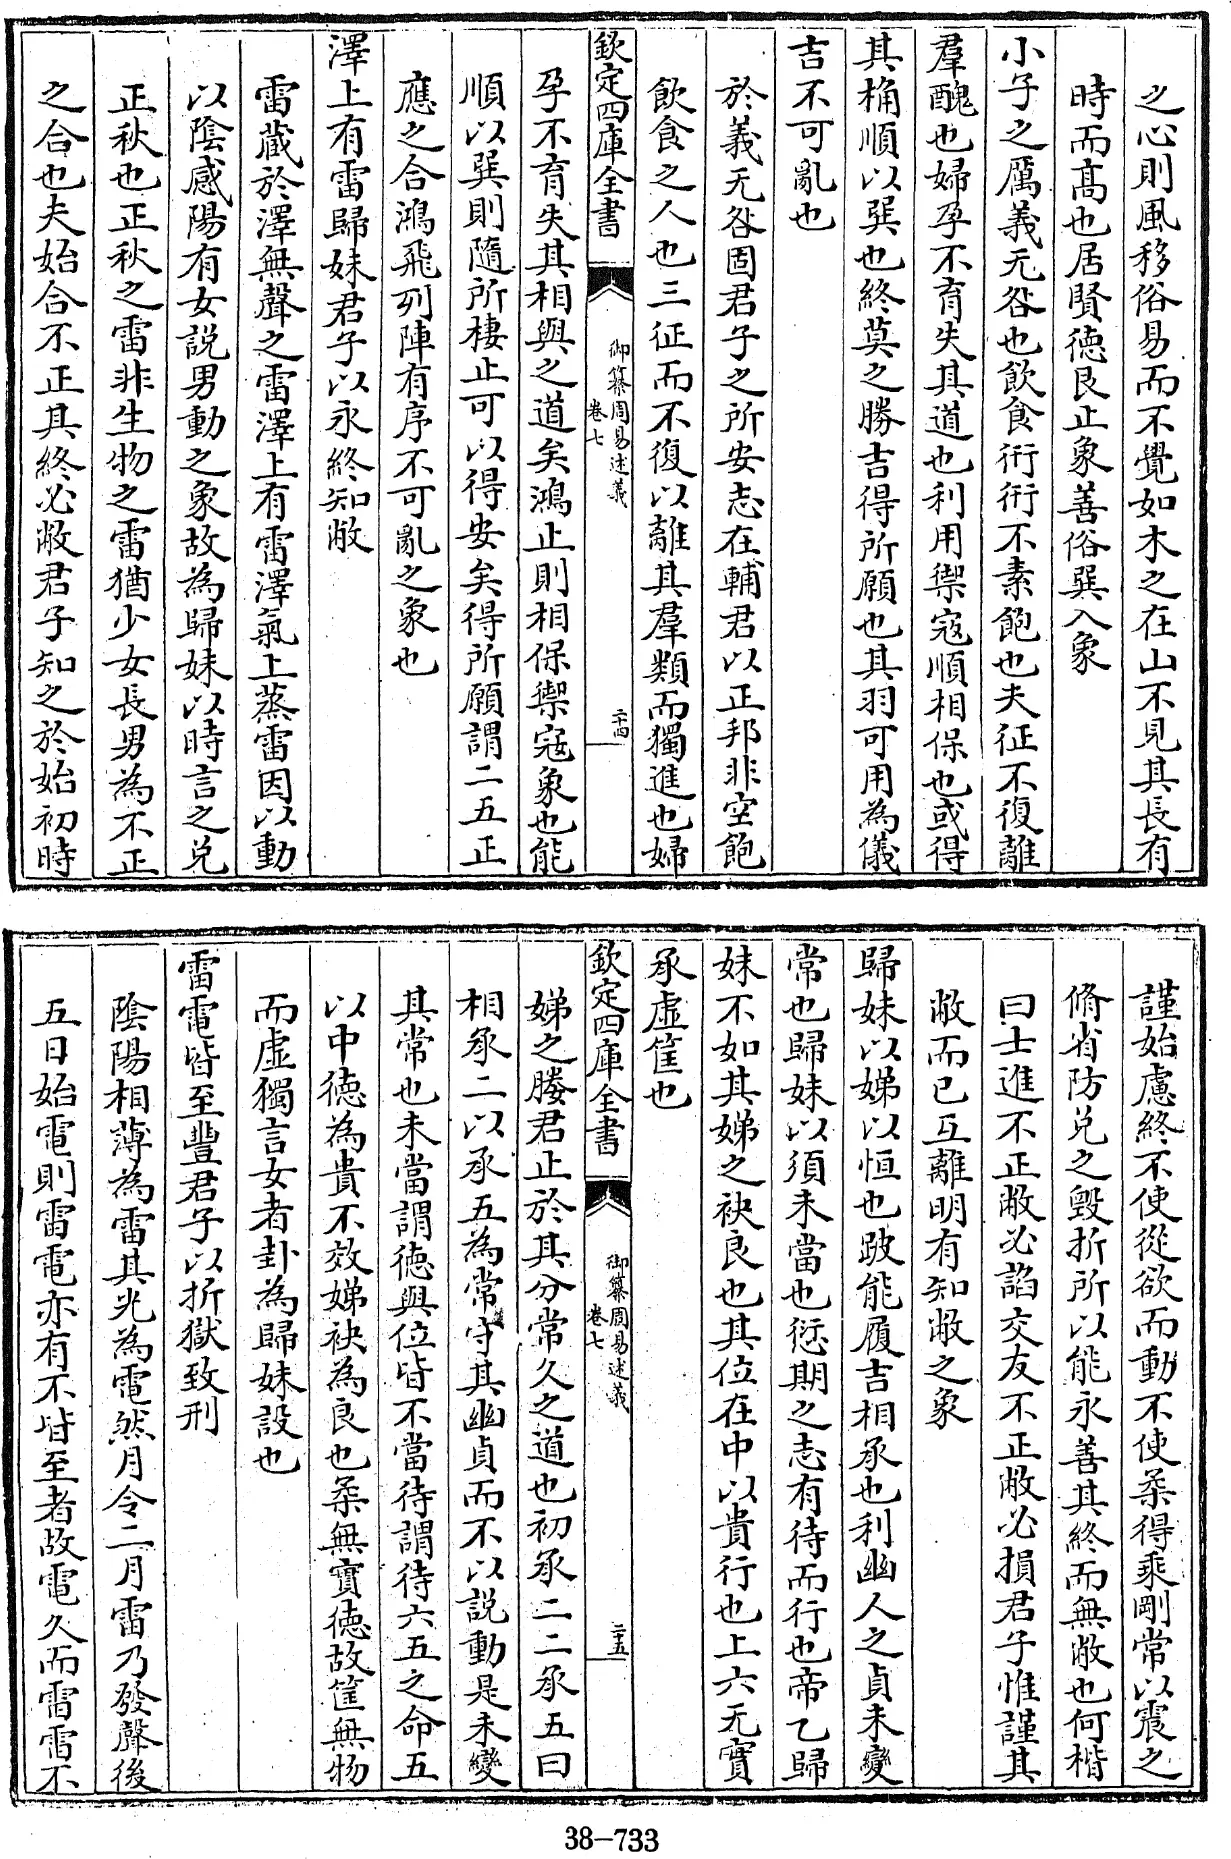 之心則風移俗易而不覺如木之在山不見其長有
時而髙也居賢徳艮止象善俗巽入象
小子之厲義无咎也飲食衎衎不素飽也夫征不復離
羣醜也婦孕不育失其道也利用禦寇順相保也或得
其桷順以巽也終莫之勝吉得所願也其羽可用為儀
吉不可亂也
於義无咎固君子之所安志在輔君以正邦非空飽
飲食之人也三征而不復以離其羣類而獨進也婦
欽定四庫全書
御纂周易述義
卷七
二十四
孕不育失其相與之道矣鴻止則相保禦寇象也能
順以巽則隨所棲止可以得安矣得所願謂二五正
應之合鴻飛列陣有序不可亂之象也
澤上有雷歸妹君子以永終知敝
雷蔵於澤無聲之雷澤上有雷澤氣上蒸雷因以動
以隂感陽有女説男動之象故為歸妹以時言之兑
正秋也正秋之雷非生物之雷猶少女長男為不正
之合也夫始合不正其終必敝君子知之於始初時
謹始慮終不使從欲而動不使柔得乘剛常以震之
脩省防兑之毀折所以能永善其終而無敝也何楷
曰士進不正敝必諂交友不正敝必損君子惟謹其
敝而已互離明有知敝之象
歸妹以娣以恒也跛能履吉相承也利幽人之貞未變
常也歸妹以須未當也愆期之志有待而行也帝乙歸
妹不如其娣之袂良也其位在中以貴行也上六无實
承虚筐也
欽定四庫全書
御纂周易述義
卷七
二十五
娣之媵君止於其分常久之道也初承二二承五曰
相承二以承五為常守其幽貞而不以説動是未變
其常也未當謂徳與位皆不當待謂待六五之命五
以中徳為貴不效娣袂為良也柔無實徳故筐無物
而虚獨言女者卦為歸妹設也
雷電皆至豐君子以折獄致刑
隂陽相薄為雷其光為電然月令二月雷乃發聲後
五日始電則雷電亦有不皆至者故電久而雷雷不
38-733